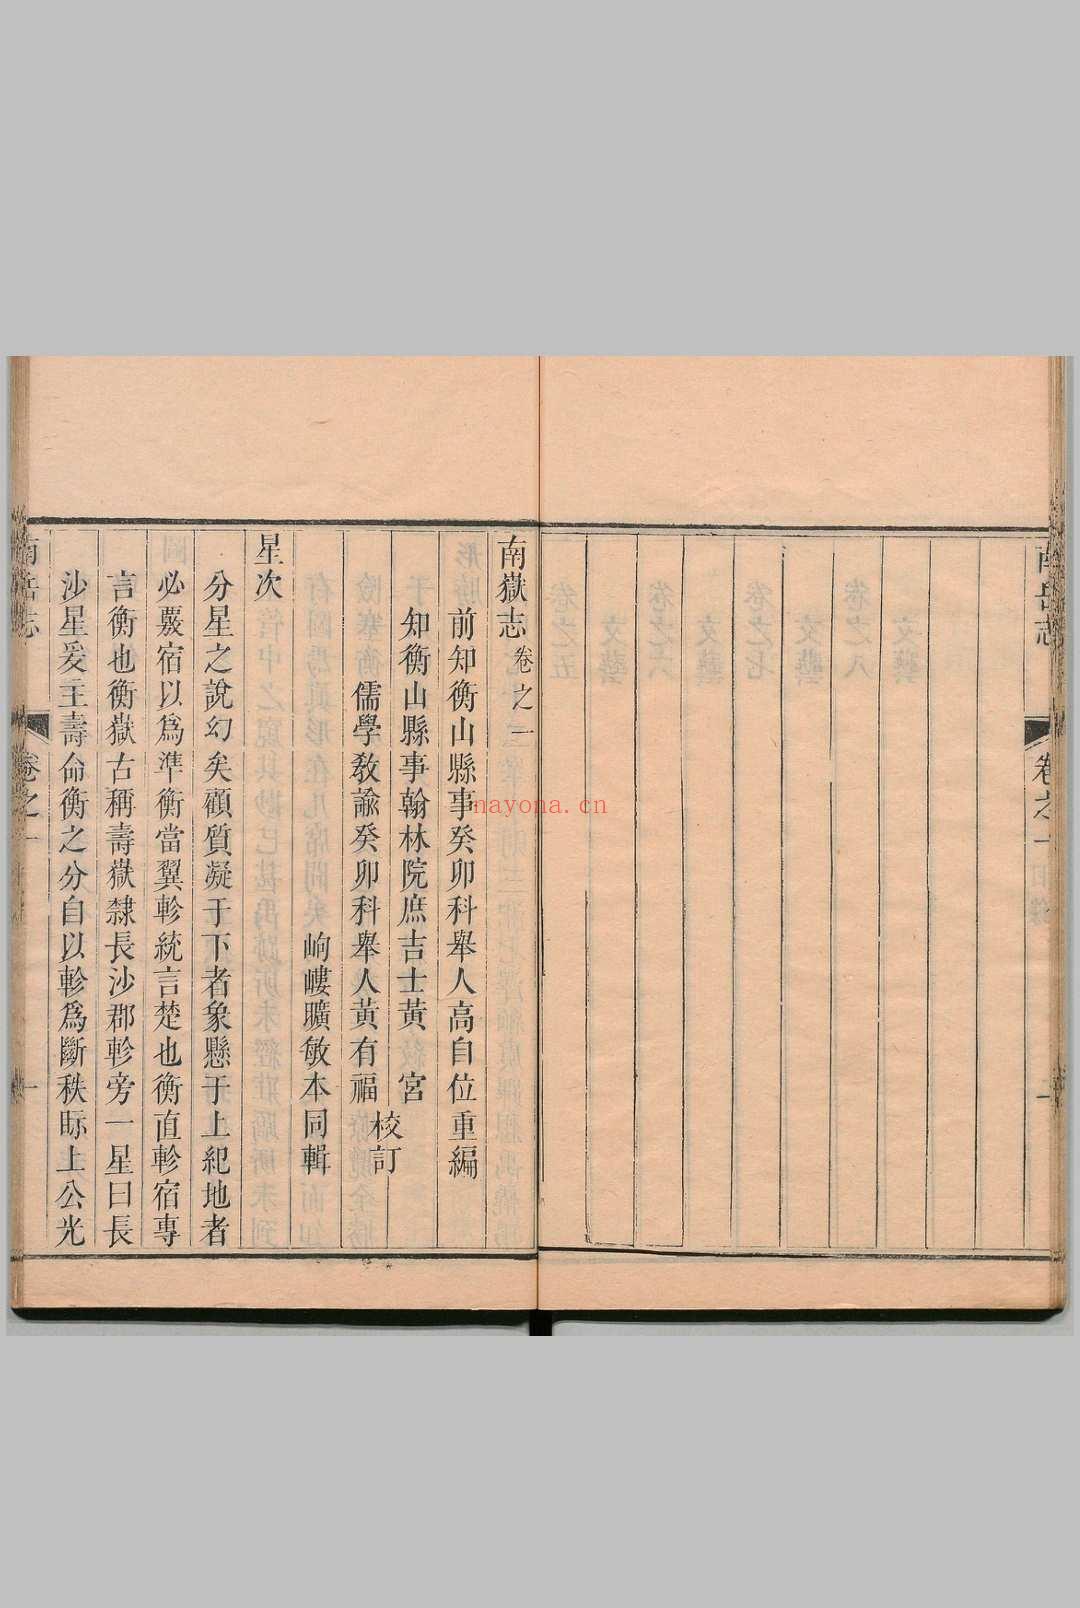 南岳志
卷之一
南嶽志卷之一
前知衡山縣事癸卯科舉人高自位重編
知衡山縣事翰林院庶吉士黃宮
校訂
儒學教諭癸卯科舉人黃有福
岣嶁曠敏本同輯
星次
分星之說幻矣顧質凝于下者象懸于上紀地者
必覈宿以爲準衡當翼軫統言楚也衡直軫宿專
言衡也衡嶽古稱壽嶽隸長沙郡軫旁一星曰長
沙星爰主壽命衡之分自以軫爲斷秩眎上公光
南岳志
卷之一
一
nayona.cn